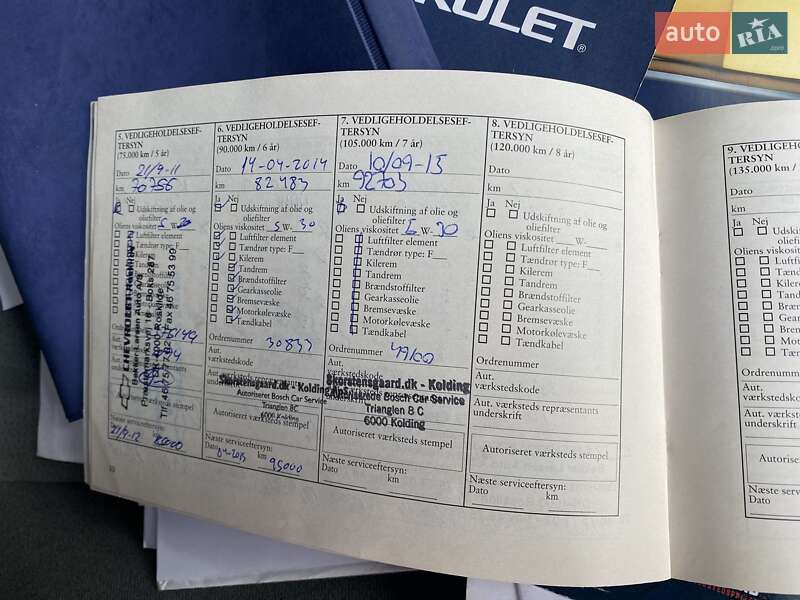 ROLET®
auto RIA
.com
5. VEDLIGEHOLDELSESEF-
TERSYN
(75.000 km / 5 år)
Dato 21/9-11
km 70756
Ja Nej
Udskiftning af olie og
oliefilter
Oliens viskositet W-
Luftfilter element
Tændrør type: F
Kilerem
Tandrem
CHEVROLET
4000 Roskilde
Aut.
værkstedskode
Næste serviceeftersyn:
21/9-12
10
6. VEDLIGEHOLDELSESEF-
TERSYN
(90.000 km / 6 år)
Dato 14-04-2014
km 82483
Ja Nej
Udskiftning af olie og
oliefilter
Oliens viskositet 5 W- 30
Luftfilter element
Tændrør type: F
Kilerem
Tandrem
Brændstoffilter
Gearkasseolie
Bremsevæske
Motorkølevæske
Tændkabel
Ordrenummer 30833
Aut.
værkstedskode
Skorstensgaard.dk - Kolding
Autoriseret Bosch Car Service
Trianglen 8C
6000 Kolding
Autoriseret værksteds stempel
Næste serviceeftersyn:
Dato 04-2015 km 95000
7. VEDLIGEHOLDELSESEF-
TERSYN
(105.000 km / 7 år)
Dato 10/09-15
km 92703
Ja Nej
Udskiftning af olie og
oliefilter
Oliens viskositet 5 W- 30
Luftfilter element
Tændrør type: F
Kilerem
Tandrem
Brændstoffilter
Gearkasseolie
Bremsevæske
Motorkølevæske
Tændkabel
Ordrenummer
Aut.
værkstedskode
Skorstensgaard.dk - Kolding
Bosch Car Service
Trianglen 8 C
6000 Kolding
Autoriseret værksteds stempel
Næste serviceeftersyn:
Dato km
8. VEDLIGEHOLDELSESEF-
TERSYN
(120.000 km / 8 år)
Dato
km
Ja Nej
Udskiftning af olie og
oliefilter
Oliens viskositet W-
Luftfilter element
Tændrør type: F
Kilerem
Tandrem
Brændstoffilter
Gearkasseolie
Bremsevæske
Motorkølevæske
Tændkabel
Ordrenummer
Aut.
værkstedskode
Aut. værksteds repræsentants
underskrift
Autoriseret værksteds stempel
Næste serviceeftersyn:
Dato km
9. VEDLIGEHOLDELSESEF-
TERSYN
(135.000 km /
Dato
km
Ja Nej
Udskiftning
oliefilter
Oliens viskositet
Luftfilter
Tændrør
Kilerem
Tandrem
Brændstoffilter
Gearkasseolie
Bremsevæske
Motorkølevæske
Tændkabel
Ordrenummer
Aut.
værkstedskode
Aut. værksteds
underskrift
Autoriseret
Næste serviceeftersyn:
Dato